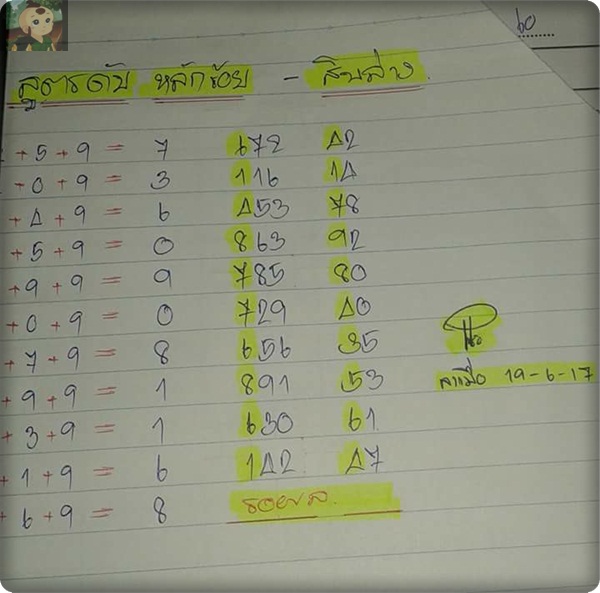 60
สูตรดับ หลักร้อย - สิบล่าง
+ 5 + 9 = 7 672 42
+ 0 + 9 = 3 116 14
+ 4 + 9 = 6 453 78
+ 5 + 9 = 0 863 92
+ 9 + 9 = 9 785 80
+ 0 + 9 = 0 729 40
+ 7 + 9 = 8 656 35
+ 9 + 9 = 1 891 53
19-6-17
+ 3 + 9 = 1 630 61
+ 1 + 9 = 6 142 47
+ 6 + 9 = 8 รอผล